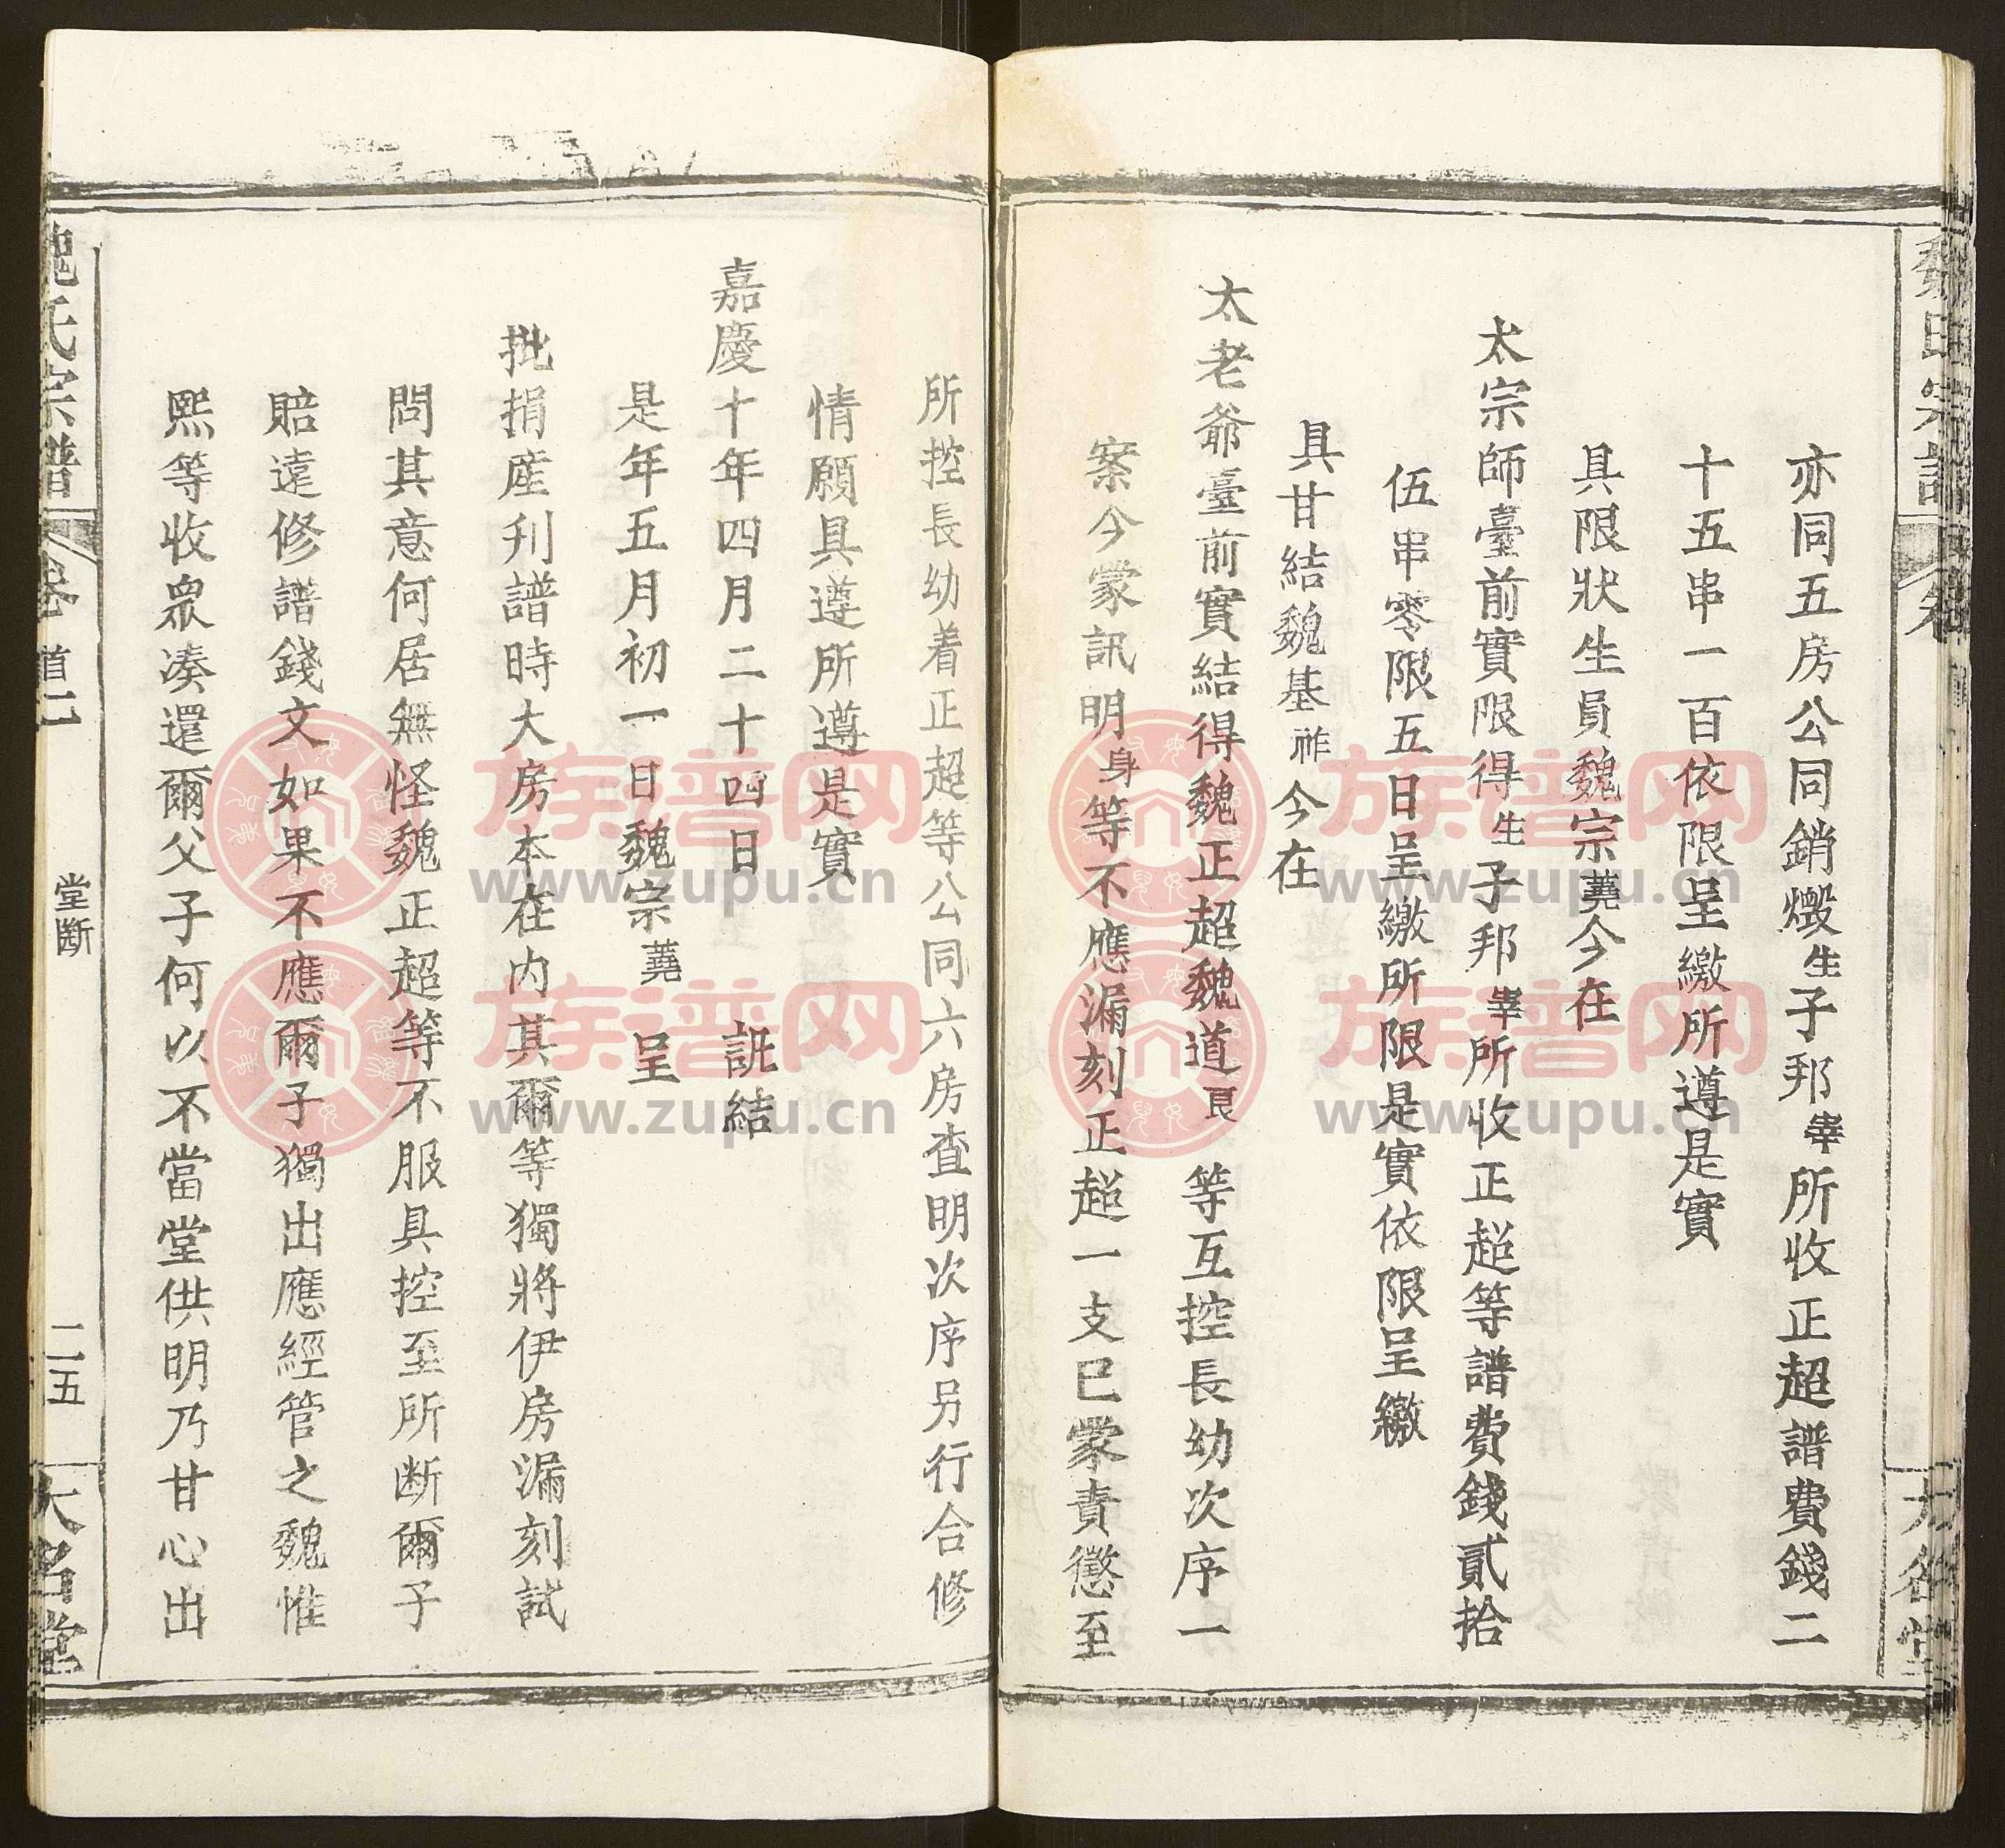 魏氏宗譜
卷
大名堂
亦同五房公同銷燬生子邦聿所收正超譜費錢二
十五串一百依限呈繳所遵是實
具限狀生員魏宗蕘今在
太宗師臺前實限得生子邦聿所收正超等譜費錢貳拾
伍串零限五日呈繳所限是實依限呈繳
具甘結魏基祚今在
太老爺臺前實結得魏正超魏道良等互控長幼次序一
案今蒙訊明身等不應漏刻正超一支已蒙責懲至
所控長幼着正超等公同六房查明次序另行合修
情願具遵所遵是實
嘉慶十年四月二十四日 誑結
是年五月初一日魏宗蕘 呈
批捐産刋譜時大房本在内其爾等獨將伊房漏刻試
問其意何居無怪魏正超等不服具控至所断爾子
賠還修譜錢文如果不應爾子獨出應經管之魏惟
熙等收衆凑還爾父子何以不當堂供明乃甘心出
魏氏宗譜
卷首二
堂断
二五
大名堂
族谱网
www.zupu.cn
族谱网
www.zupu.cn
族谱网
www.zupu.cn
族谱网
www.zupu.cn